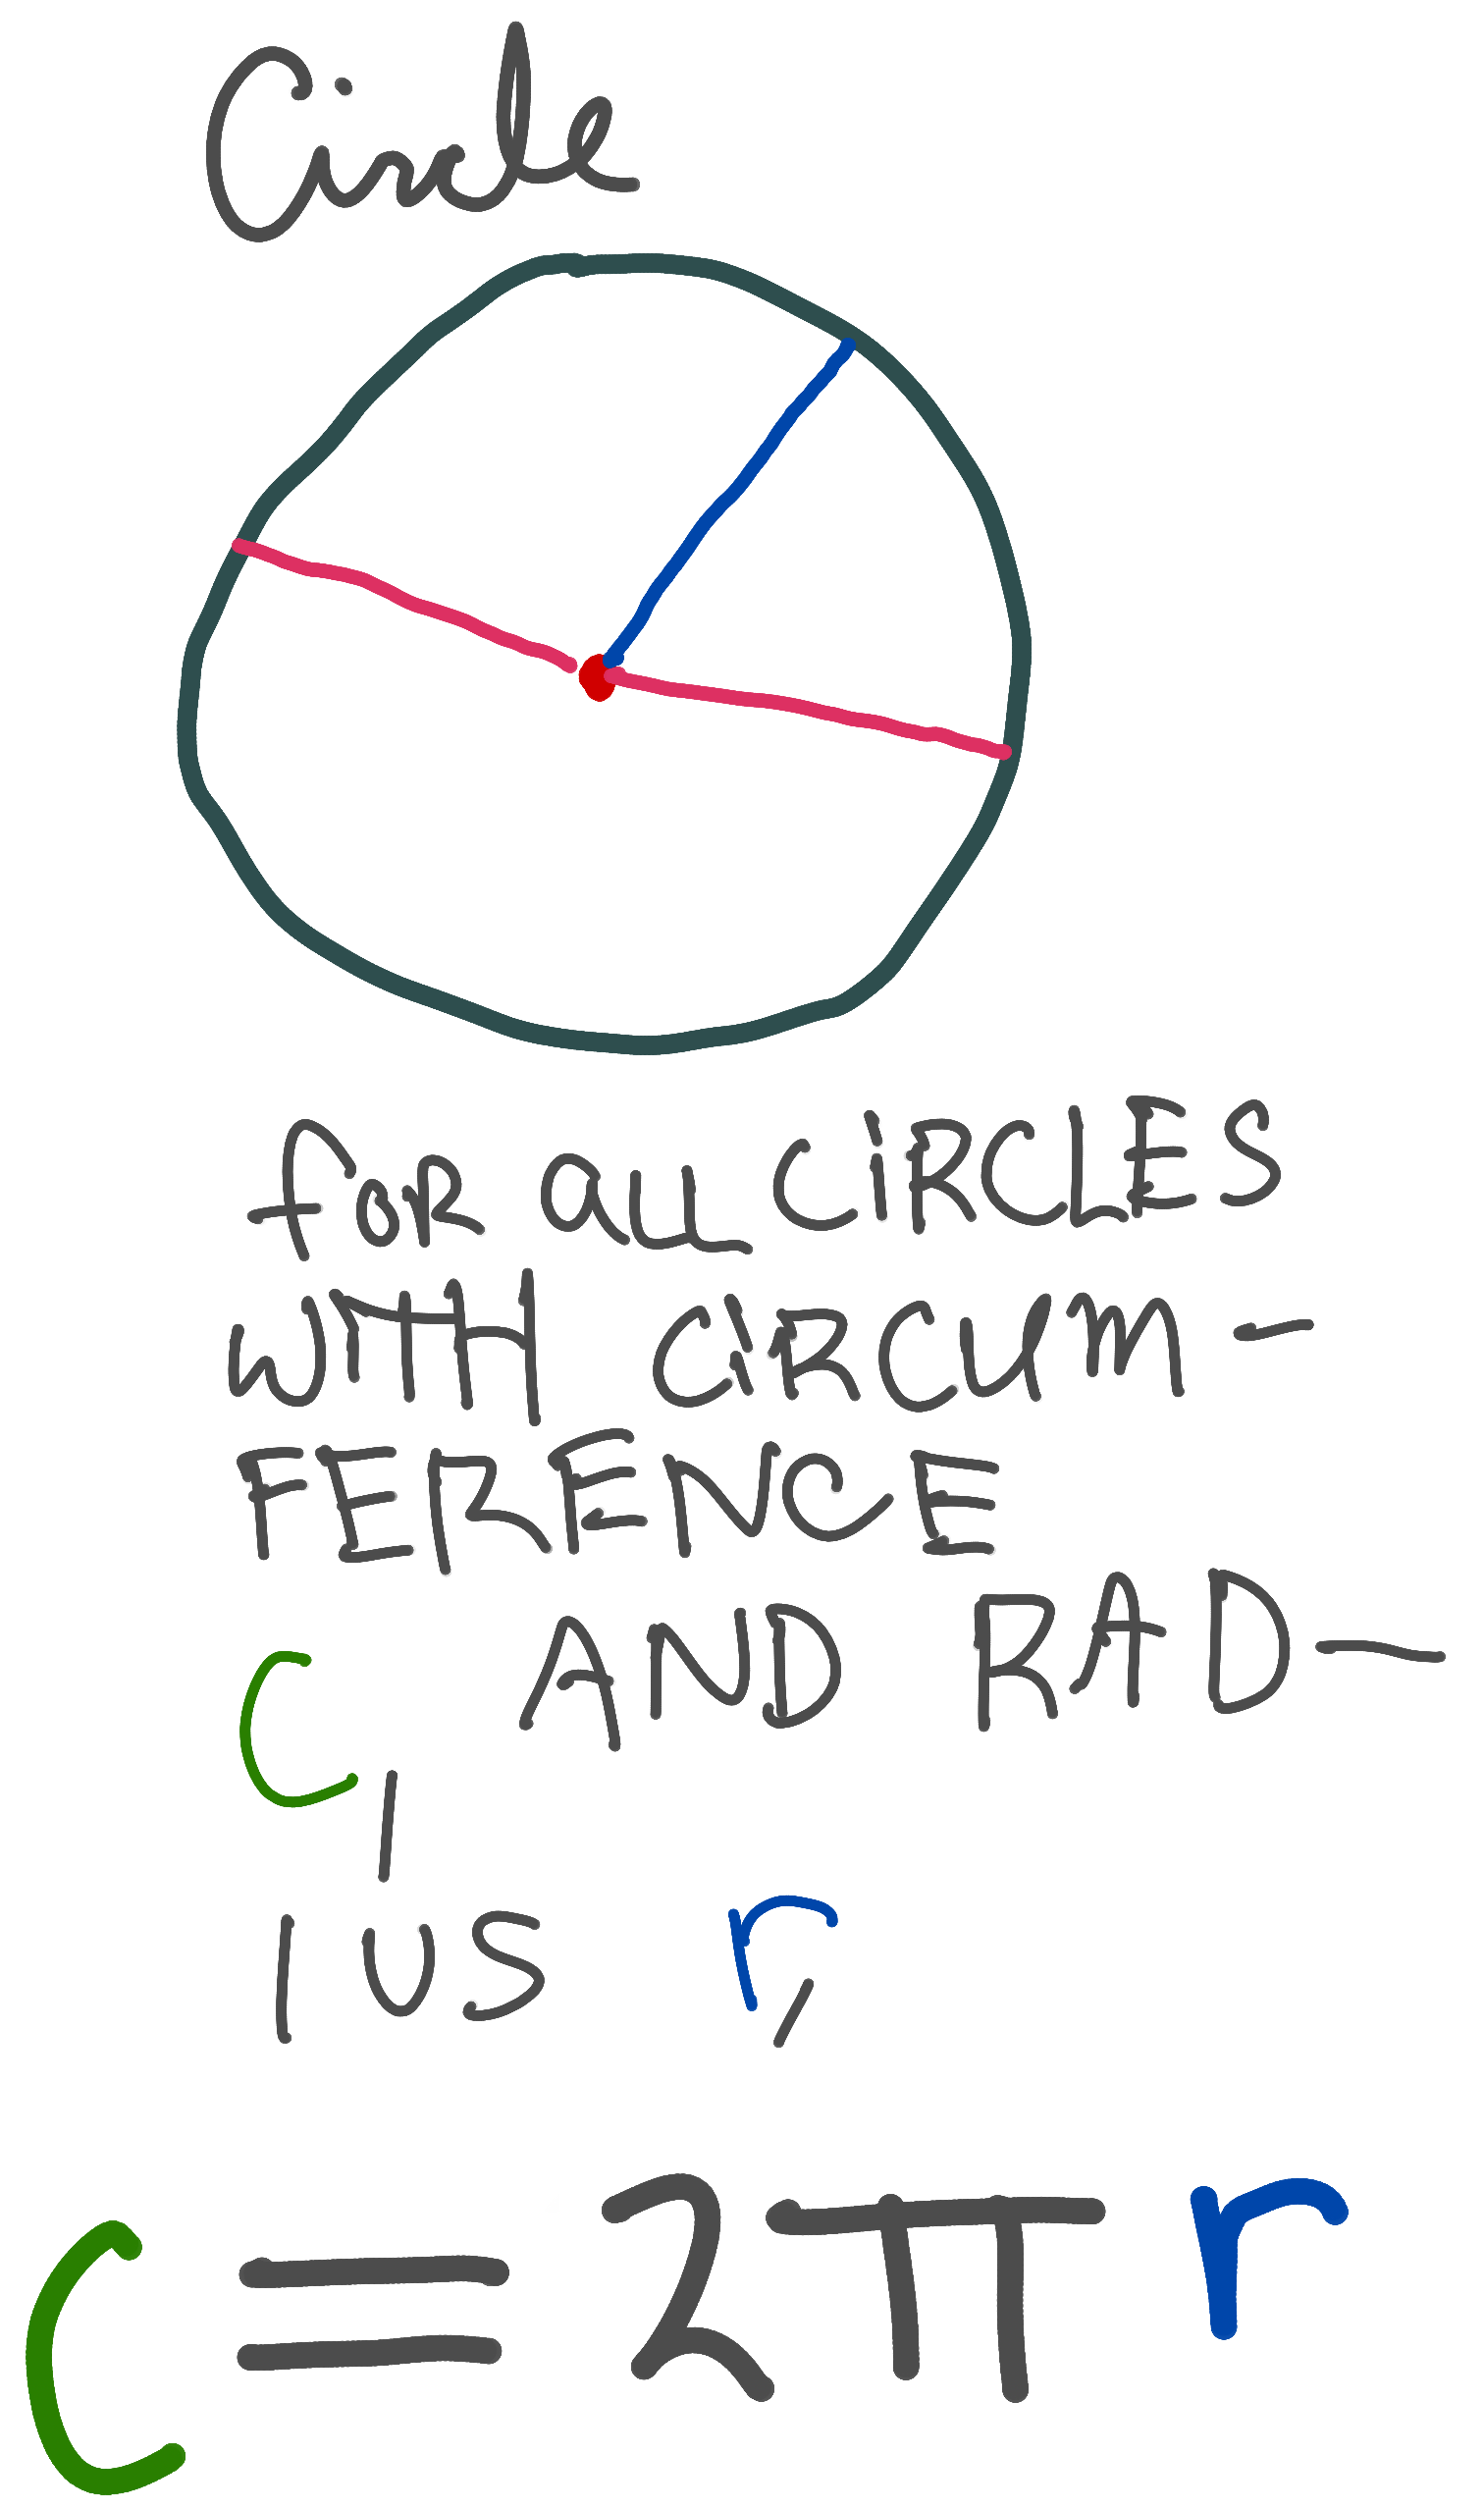 Circle
FOR ALL CIRCLES
WITH CIRCUM-
FERENCE
C, AND RAD-
IUS r,
C = 2πr